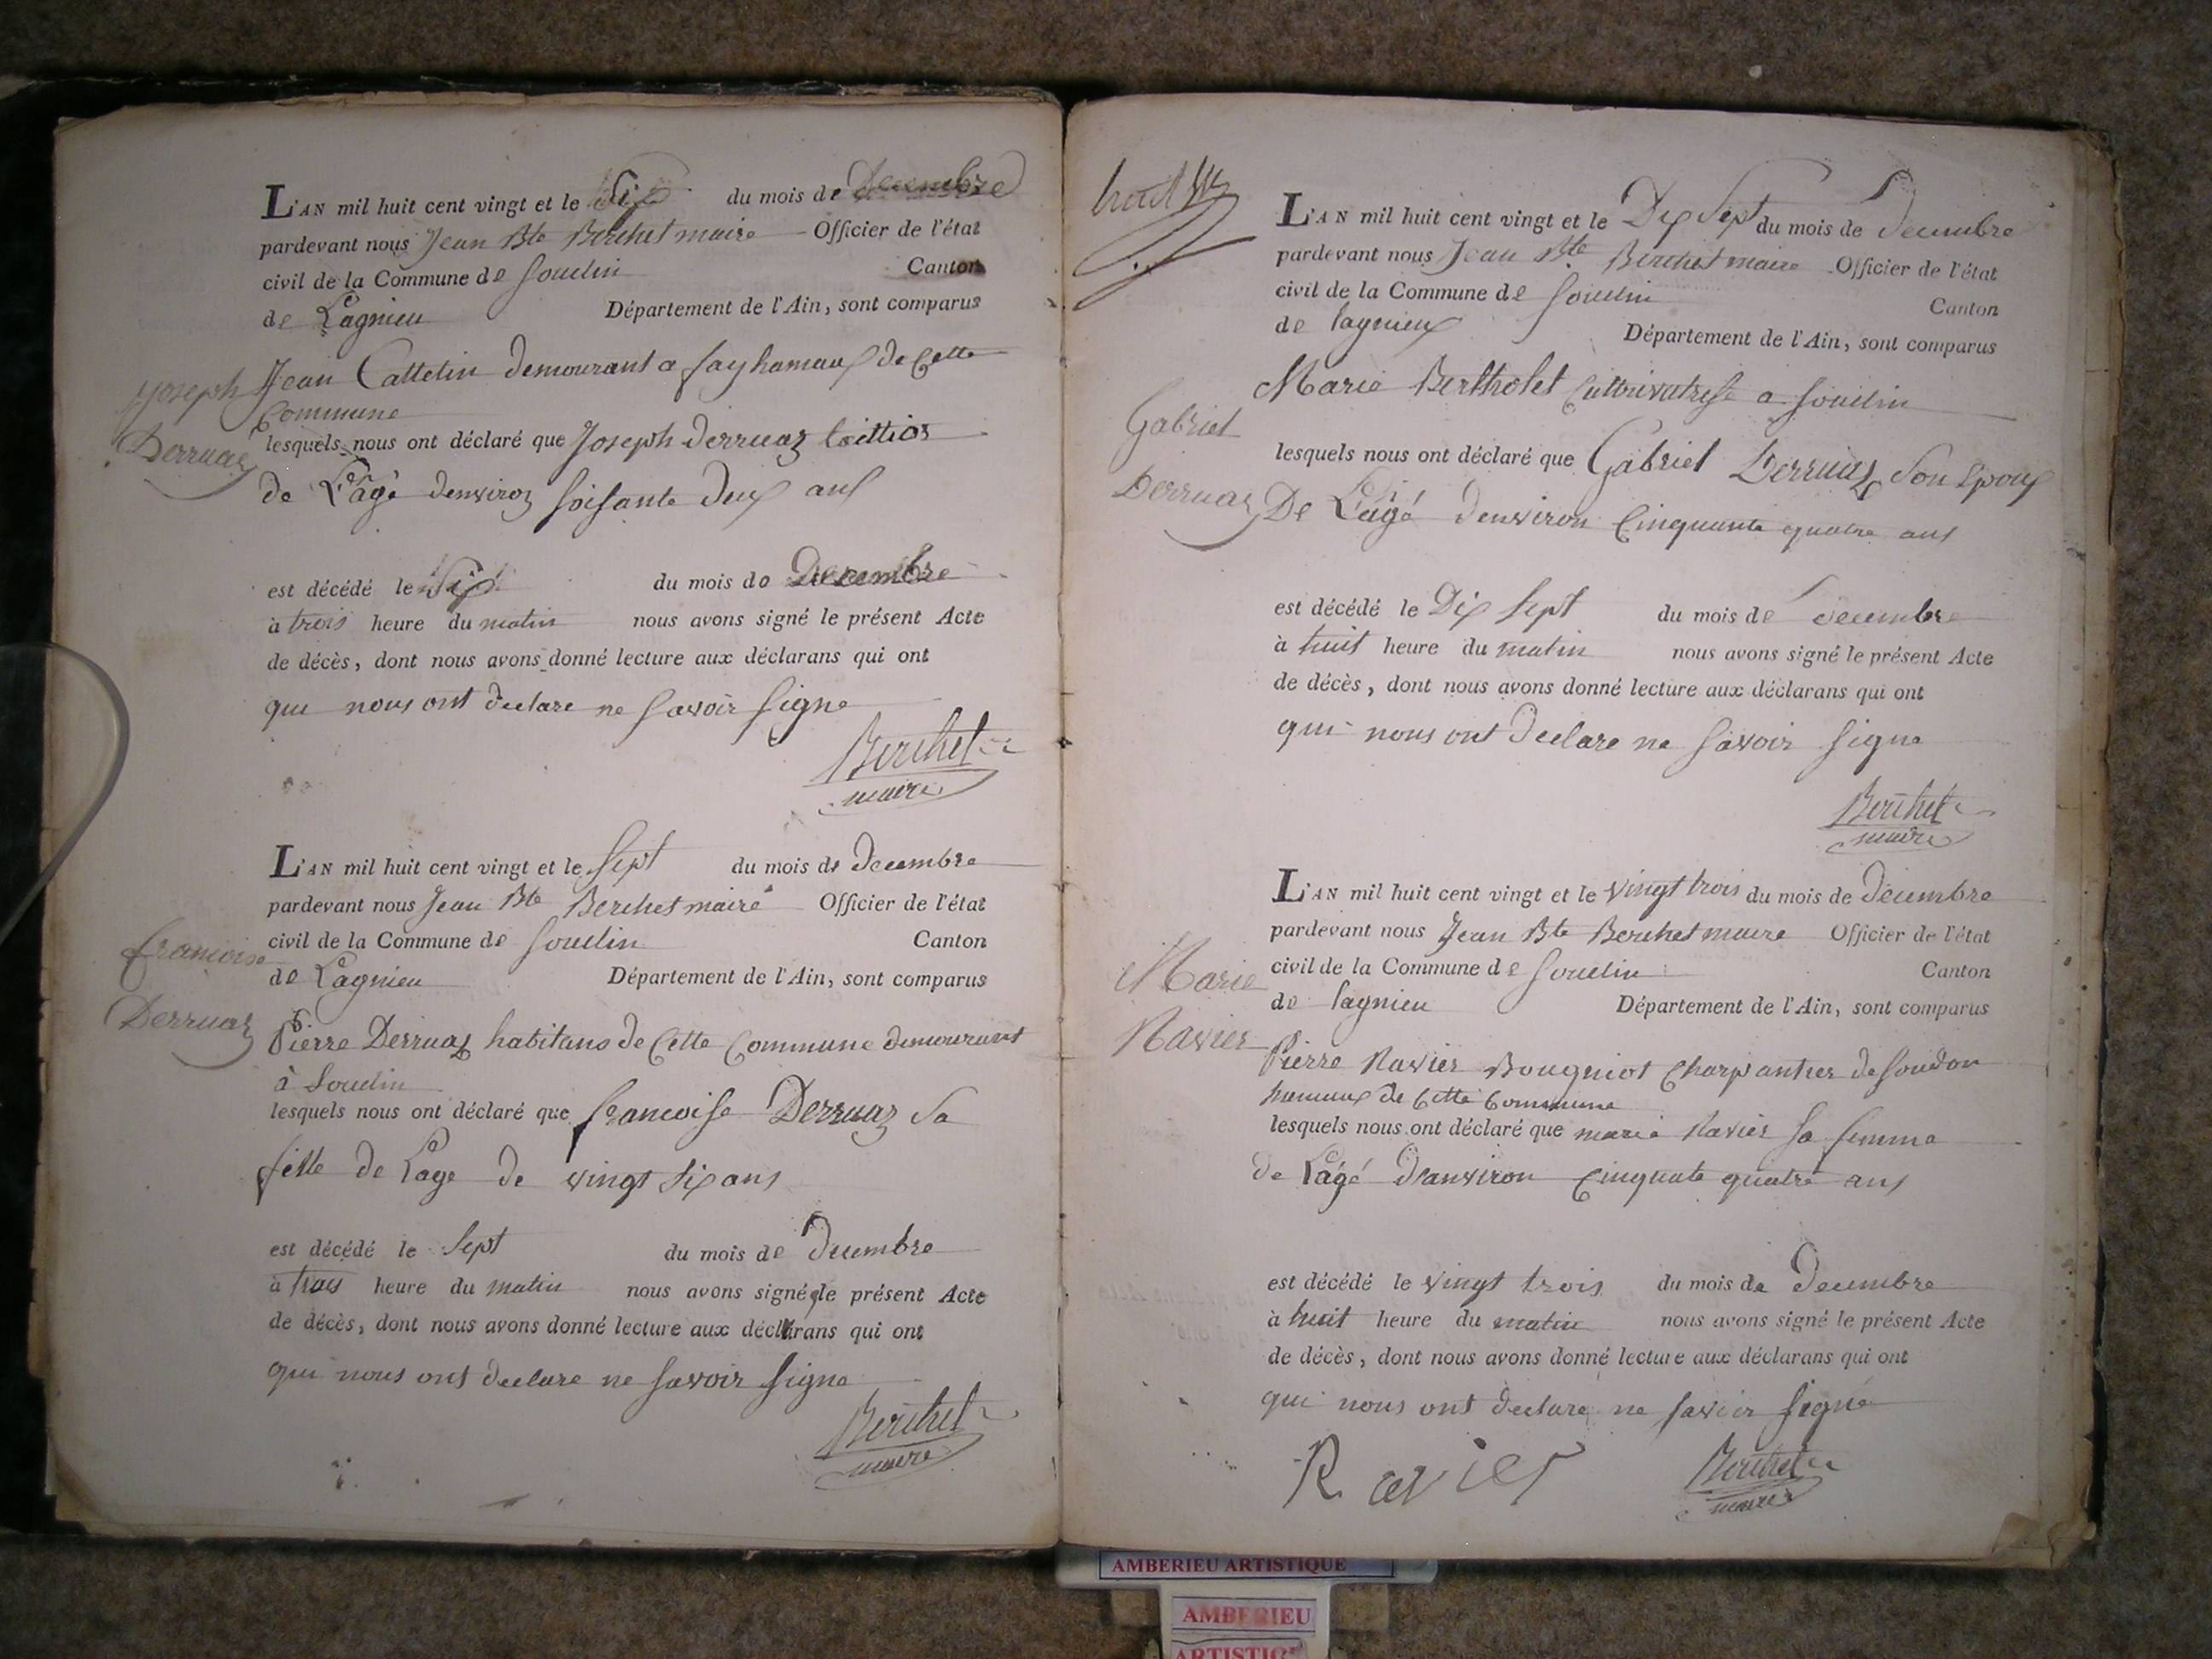 L'AN mil huit cent vingt et le Six du mois de Decembre
pardevant nous Jean Bte Berchet maire Officier de l'état
civil de la Commune de Souclin Canton
de Lagnieu Département de l'Ain, sont comparus
Jean Cattelin demourant a fay hamaux de Cette
Commune
Joseph
Derruaz
lesquels nous ont déclaré que Joseph Derruaz
de L'agé denviron soisante deux ans
est décédé le Six du mois de Decembre
à trois heure du matin nous avons signé le présent Acte
de décès, dont nous avons donné lecture aux déclarans qui ont
qui nous ont declare ne savoir signe
Berchet
maire
L'AN mil huit cent vingt et le Sept du mois de decembre
pardevant nous Jean Bte Berchet maire Officier de l'état
civil de la Commune de Souclin Canton
de Lagnieu Département de l'Ain, sont comparus
francoise
Derruaz
Pierre Derruaz habitans de Cette Commune demourant
à Souclin
lesquels nous ont déclaré que francoise Derruaz Sa
fille de Lage de vingt six ans
est décédé le Sept du mois de decembre
à trois heure du matin nous avons signé le présent Acte
de décès, dont nous avons donné lecture aux déclarans qui ont
qui nous ont declare ne savoir signe
Berchet
maire
L'AN mil huit cent vingt et le Dix Sept du mois de decembre
pardevant nous Jean Bte Berchet maire Officier de l'état
civil de la Commune de Souclin Canton
de lagnieux Département de l'Ain, sont comparus
Marie Bertholet Cultivatrise a souclin
Gabriel
Derruaz
lesquels nous ont déclaré que Gabriel Derruaz Son Epoux
De L'agé denviron Cinquante quatre ans
est décédé le Dix sept du mois de decembre
à huit heure du matin nous avons signé le présent Acte
de décès, dont nous avons donné lecture aux déclarans qui ont
qui nous ont declare ne savoir signe
Berchet
maire
L'AN mil huit cent vingt et le vingt trois du mois de decembre
pardevant nous Jean Bte Berchet maire Officier de l'état
civil de la Commune de Souclin Canton
de lagnieu Département de l'Ain, sont comparus
Marie
Ravier
Pierre Ravier Bougniot Charpantier de Soudon
hamaux de Cette Commune
lesquels nous ont déclaré que marie Ravier sa femme
de L'agé d'anviron Cinquate quatre ans
est décédé le vingt trois du mois de decembre
à huit heure du matin nous avons signé le présent Acte
de décès, dont nous avons donné lecture aux déclarans qui ont
qui nous ont declare ne savoir signe
Ravier
Berchet
maire
AMBERIEU ARTISTIQUE
AMBERIEU